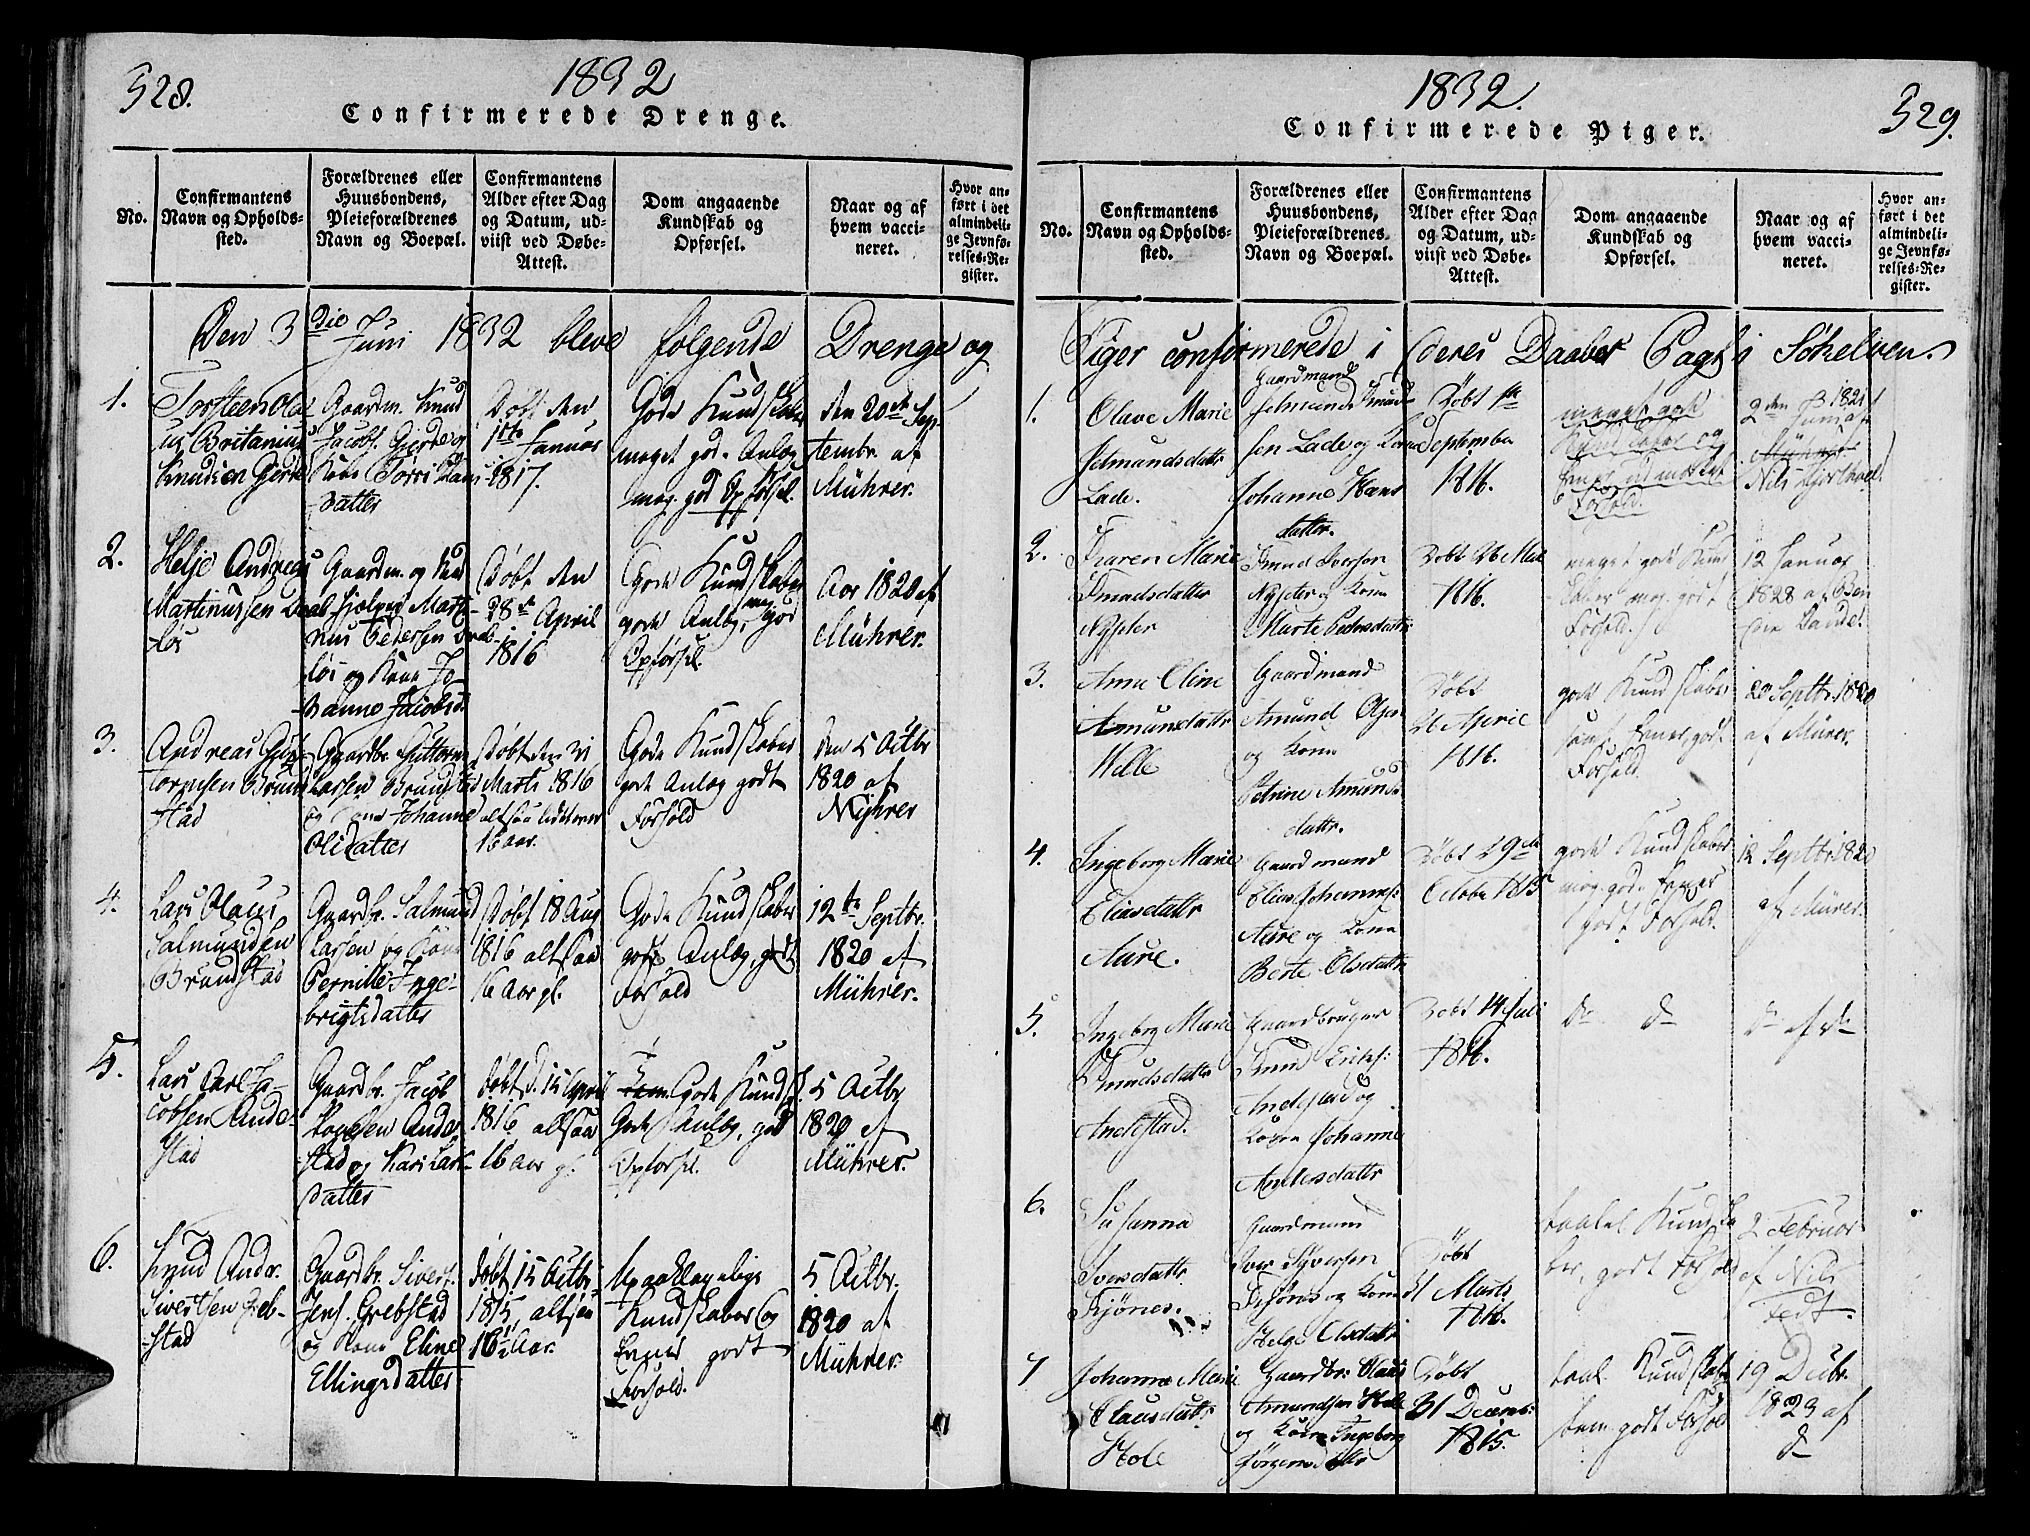 528.
1832
Confirmerede Drenge.
No.
Confirmantens
Navn og Opholds-
sted.
Forældrenes eller
Huusbondens,
Pleieforældrenes
Navn og Boepæl.
Confirmantens
Alder efter Dag
og Datum, ud-
viist ved Døbe-
Attest.
Dom angaaende
Kundskab og
Opførsel.
Naar og af
hvem vacci-
neret.
Hvor an-
ført i det
almindeli-
ge Jevnfø-
relses-Re-
gister.
Den 3die Juni 1832 bleve følgende Drenge og
1.
Torsteen Ola
us Britanius
Knudsen Gjerde
Gaardm. Knud
Jacobs. Gjerde og
Kone
datter
Døbt den
1ste Januar
1817.
Gode Kundskaber
meget gode Anlæg
meg. god Opførsel.
den 20de Sep-
tembr. af
Mührer.
2.
Helje Andreas
Martinussen
løs
Gaardm. og
hjelper Marti-
nus Pedersen
løs og Kone Jo-
hanne Jacobsd.
Døbt den
28de April
1816
Gode Kundskaber
gode Anlæg, meg. god
Opførsel.
Aar 1820 af
Mührer.
3.
Andreas Gut-
tormsen Brund
stad
Gaardbr. Guttorm
Larsen Brundstad
og Kone Johanne
Olsdatter
Døbt den 31
Marts 1816
altsaa
16 aar.
Gode Kundskaber
gode Anlæg godt
Forhold
den 5 Octbr
1820 af
Myhrer
4.
Lars Olaus
Salmundsen
Brundstad
Gaardbr. Salmund
Larsen og Kone
Pernille Inge-
brigtsdatter
Døbt 18 Aug
1816 altsaa
16 Aar gl.
Gode Kundskaber
gode Anlæg, godt
Forhold
12te Septbr.
1820 af
Mührer.
5.
Lars Carl Ja-
cobsen Ande-
stad
Gaardbr. Jacob
Ande-
stad og Kari Lars-
datter
døbt d. 15 April
1816 altsaa
16 Aar gl.
Gode Kundsk.
Gode Anlæg, god
Opførsel.
5 Octbr
1820 af
Mührer.
6.
Knud Andr.
Sivertsen Greb-
stad
Gaardbr. Sivert
Jens. Grebstad
og Kone Eline
Ellingsdatter
døbt 15 Octbr
1815, altsaa
16½ Aar.
Upaaklagelige
Kundskaber og
Evner godt
Forhold.
5 Octbr.
1820 af
Mührer.
1832.
529.
Confirmerede Piger.
No.
Confirmantens
Navn og Opholds-
sted.
Forældrenes eller
Huusbondens,
Pleieforældrenes
Navn og Boepæl.
Confirmantens
Alder efter Dag
og Datum, ud-
viist ved Døbe-
Attest.
Dom angaaende
Kundskab og
Opførsel.
Naar og af
hvem vacci-
neret.
Hvor an-
ført i det
almindeli-
ge Jevnfø-
relses-Re-
gister.
Piger confirmerede i deres Daabes Pagt i Søkelven.
1.
Olave Marie
Jetmundsdattr
Lade.
Gaardmand
Jetmund Knud
sen Lade og Kone
Johanne Hans
dattr.
Døbt 1ste
September
1816.
meget gode
Kundskaber og
Evner udmærket
Forhold.
2den Juni 1821
af
Nils
2.
Karen Marie
Knudsdatter
Nysæter
Knud Iversen
Nysæter og Kone
Marte Pedersdattr
Døbt 26 Mai
1816.
meget gode Kund
skaber meg. godt
Forhold.
12 Januar
1828 af
3.
Anne Oline
Amundsdattr
Welle
Gaardmand
Amund
og Kone
Petrine Amunds
dattr.
Døbt
26 April
1816.
gode Kundskaber
samt Evner godt
Forhold.
20 Septbr 1820
af Mürer.
4.
Ingeborg Marie
Eliasdattr
Aure.
Gaardmand
Elias Johannes:
Aure og Kone
Berte Olsdattr
Døbt 29de
October 1815
gode Kundskaber
meg. gode Evner
godt Forhold.
12 Septbr 1820
af Mürer.
5.
Ingeborg Marie
Knudsdattr
Andestad.
Gaardbruger
Knud
Andestad og
Kone Johanne
Andersdattr
Døbt 14 Juli
1816.
do do
do af do
6.
Susanna
Iversdattr
Fjønes.
Gaardmand
Iver Syversen
Fjønes og Kone
Helge Olsdattr
Døbt
31 Marts
1816.
taalel. Kundska
ber, godt Forhold
2 Februar
af Nils
7
Johanne Marie
Clausdattr
Hole
Gaardbr. Claus
Amundsen Hole
og Kone Ingeborg
Jørgensdattr
Døbt
31 Decemb:
1815.
taal. Kundskaber
godt Forhold
19 Decbr.
1823 af
do